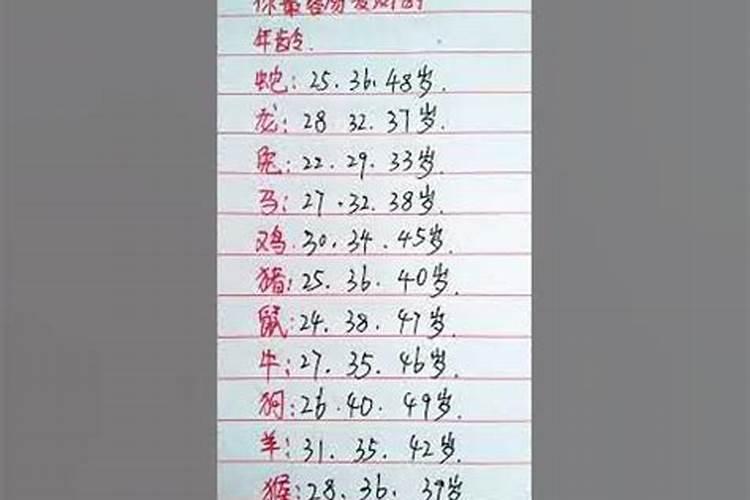 你最容易发财的
年龄.
蛇: 25. 36. 48岁.
龙: 28 32. 37岁.
兔: 22. 29. 33岁.
马: 27. 32. 38岁.
鸡. 30. 34. 45岁.
猪: 25. 36. 40岁.
鼠: 24. 38. 47岁.
牛: 27. 35. 46岁.
狗: 26. 40. 49岁.
羊: 31. 35. 42岁.
猴: 28. 36. 39岁